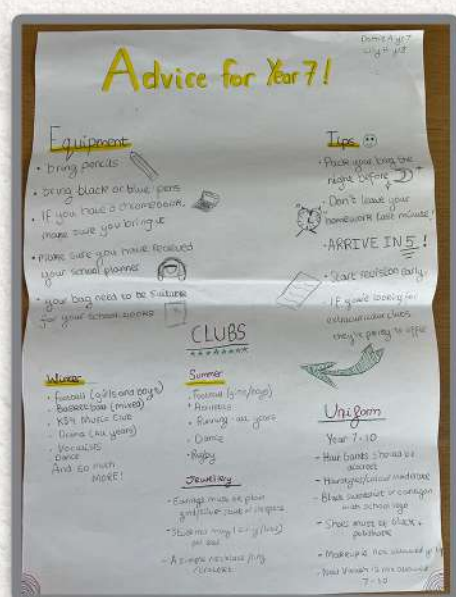 Advice for Year 7!
Equipment
• bring pencils
• bring black or blue pens
• If you have a chromebook,
make sure you bring it
• Make sure you have received
your school planner
• your bag need to be suitable
for your school books
Tips
• Pack your bag the
night before
• Don't leave your
homework last minute!
• ARRIVE IN 5!
• Start revision early.
• If you're looking for
extracurricular clubs
they're plenty to offer
CLUBS
Winter
• football (girls and boys)
• Basketball (mixed)
• KS4 Music Club
• Drama (all years)
• Vocalists
Dance
And so much
MORE!
Summer
• Football (girls/boys)
• Athletics
• Running - all years
• Dance
• Rugby
Jewellery
- Earrings must be plain
gold/silver studs or sleepers
- Students may
per ear
- A simple necklace/ring
Uniform
Year 7-10
- Hair bands should be
discreet
- Hairstyles/colour moderate
- Black sweatshirt or cardigan
with school logo
- Shoes must be black &
polishable
- Makeup is not allowed
- Nail Varnish is not allowed
7-10